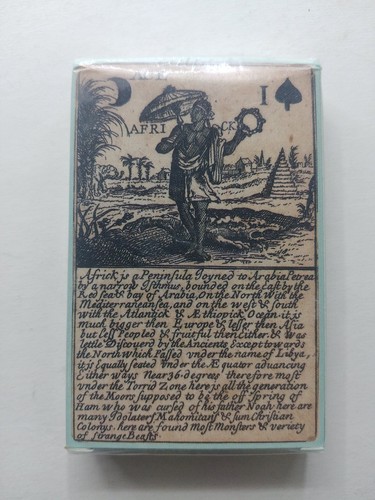 ACE
I
AFRI CK
Africk is a Peninsula Joyned to Arabia Petrea
by a narrow Isthmus, bounded on the east by the
Red sea & bay of Arabia, On the North With the
Mediterranean sea, and on the west & south
with the Atlantick & Æthiopick Ocean it is
much bigger then Europe & lesser then Asia
but Less Peopled & fruitful then Either. & Was
lettle Discouerd by the Ancients Except towards
the North which Passed vnder the name of Libya,
it is Equally seated vnder the Æquator aduancing
Either ways Near 36 degrees therefore most
vnder the Torrid Zone here is all the generation
of the Moors supposed to be the off Spring of
Ham who was cursed of his father Noah here are
many Idolaters Mahomitans & sum Christian
Colonys. here are found Most Monsters & veriety
of strange Beasts